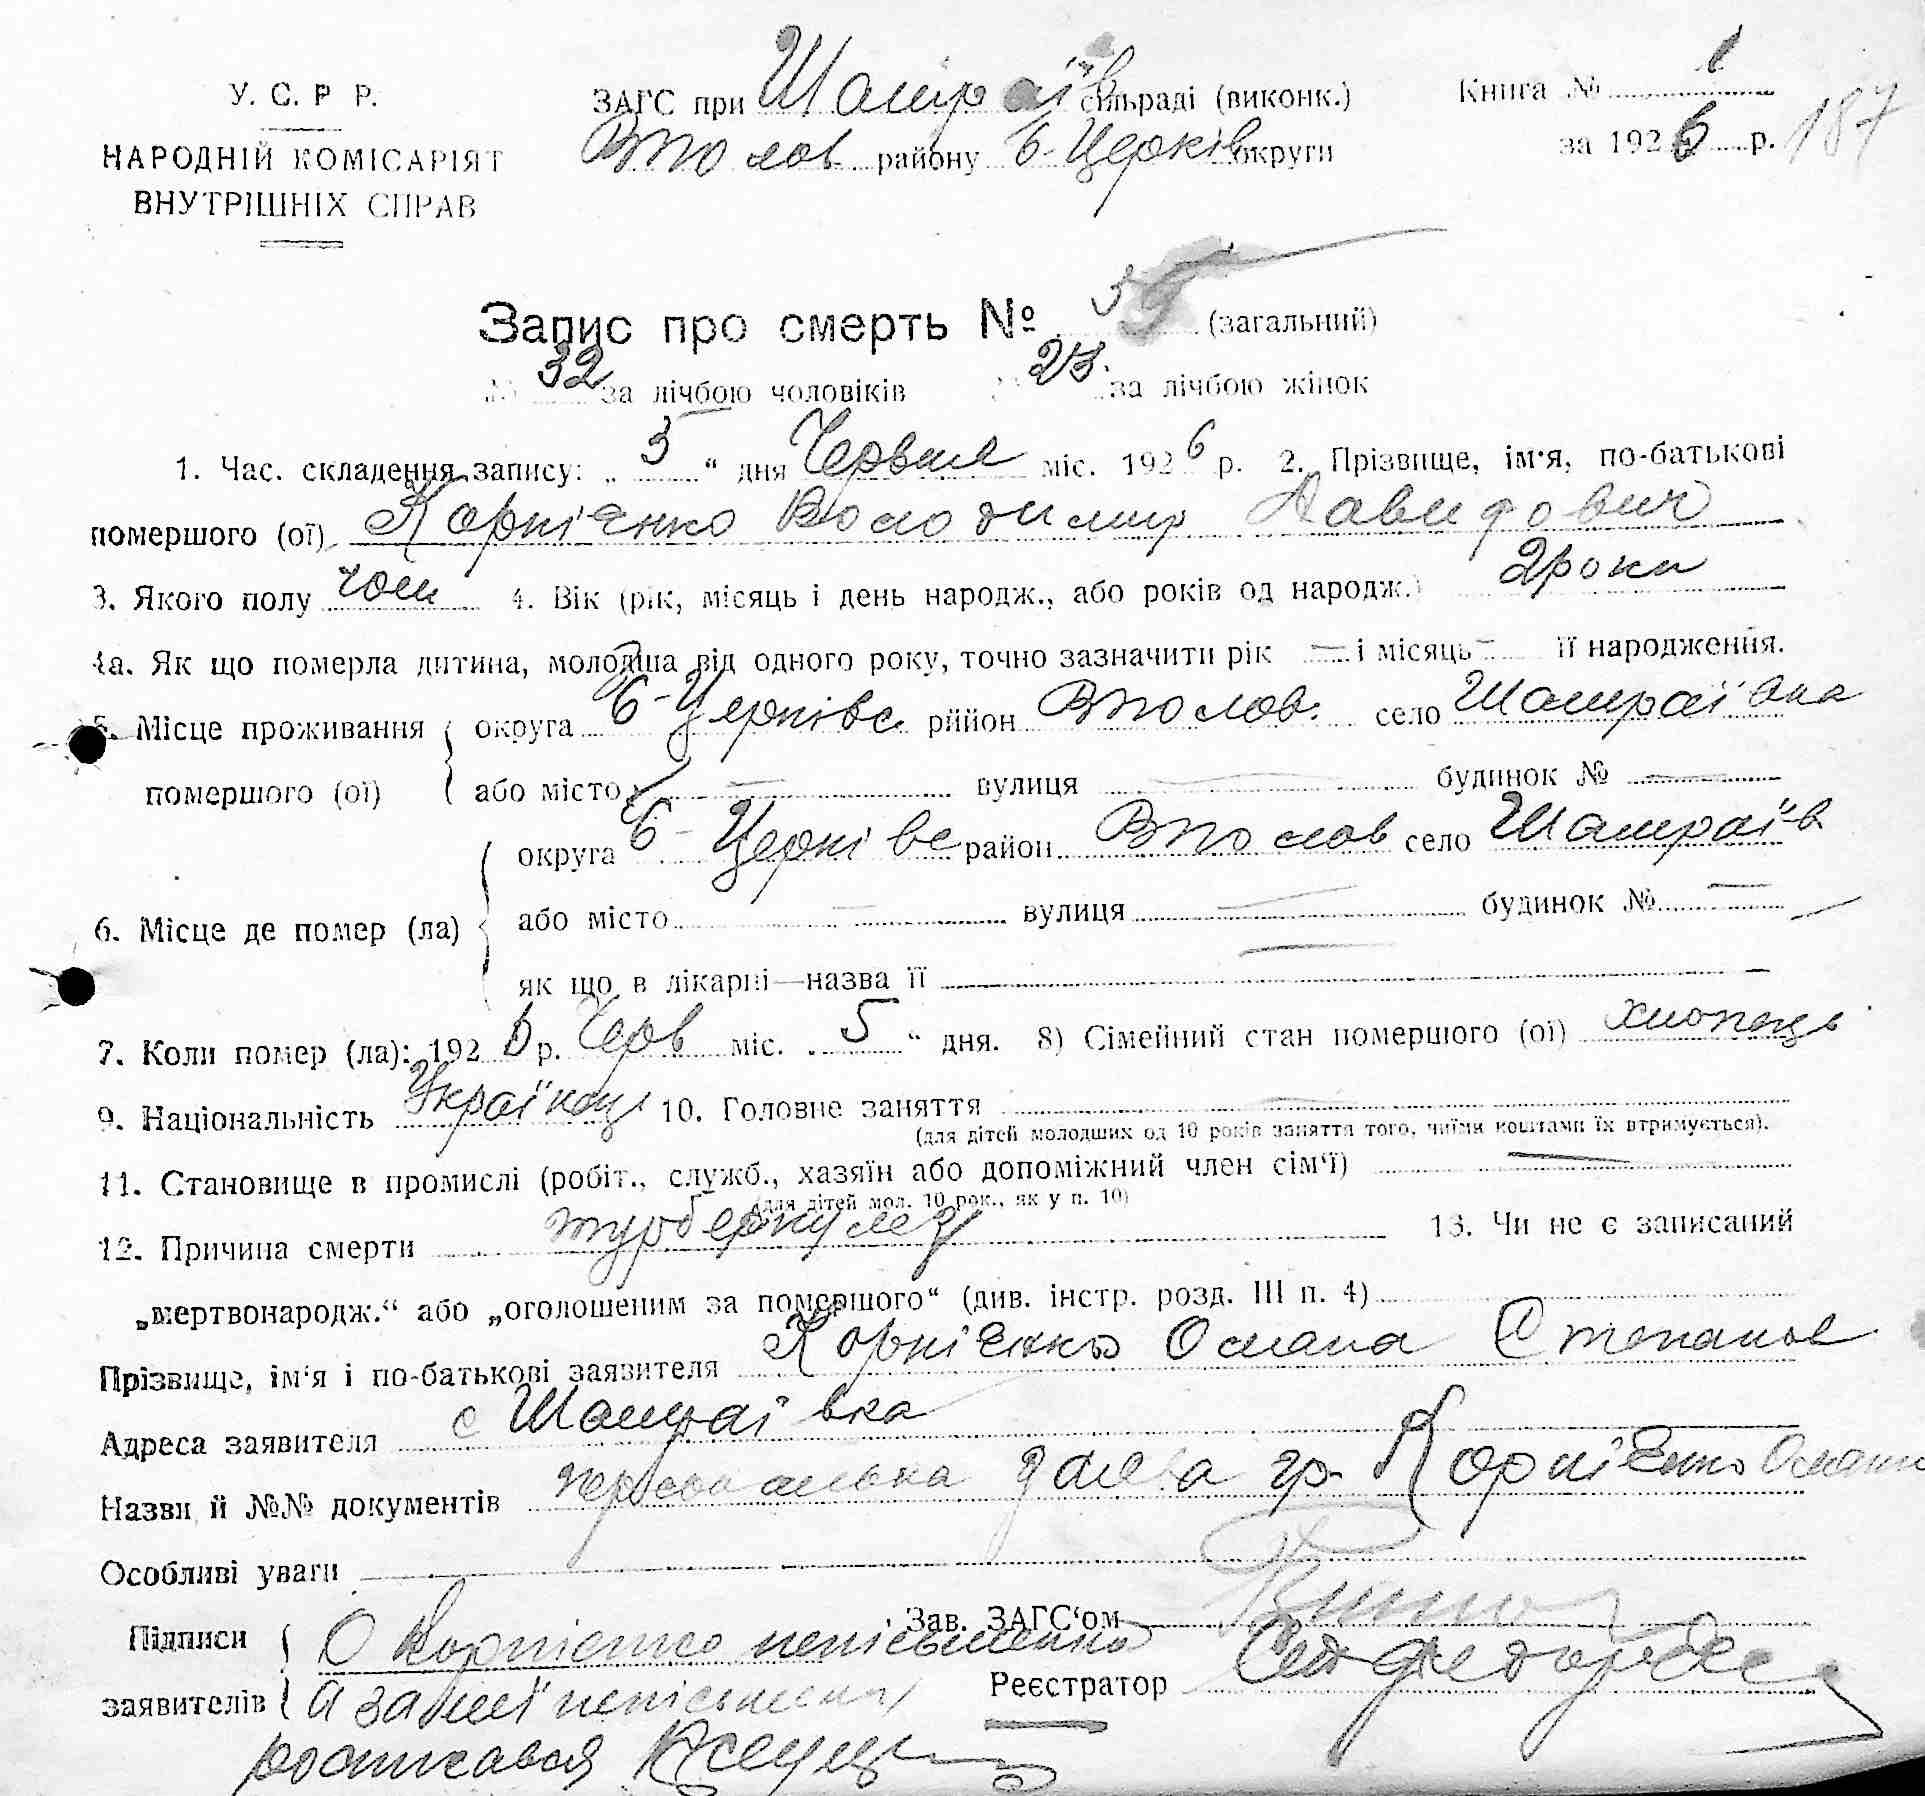 У. С. Р Р.
НАРОДНІЙ КОМІСАРІЯТ
ВНУТРІШНІХ СПРАВ
ЗАГС при Шамраїв сільраді (виконк.)
Втолов району Б-Церків округи
Книга № 1
за 1926 р. 187
Запис про смерть № (загальний)
№ 32 за лічбою чоловіків № 23 за лічбою жінок
1. Час. складення запису: „ 5 “ дня Червня міс. 1926 р. 2. Прізвище, ім'я, по-батькові
помершого (ої) Корпієнко Володимир Давидович
3. Якого полу чол 4. Вік (рік, місяць і день народж., або років од народж.) 2 роки
4а. Як що померла дитина, молодша від одного року, точно зазначити рік — і місяць — її народження.
5. Місце проживання округа Б-Церківс рийон Втолов. село Шамраївка
помершого (ої) або місто — вулиця — будинок № —
округа Б-Церківс район Втолов село Шамраїв
6. Місце де помер (ла) або місто — вулиця — будинок № —
як що в лікарні—назва її —
7. Коли помер (ла): 1926 р. Черв міс. „ 5 “ дня. 8) Сімейний стан помершого (ої) хлопець
9. Національність Українец 10. Головне заняття —
(для дітей молодших од 10 років заняття того, чиїми коштами їх втримується).
11. Становище в промислі (робіт., служб., хазяїн або допоміжний член сім'ї) —
(для дітей мол. 10 рок., як у п. 10)
12. Причина смерти туберкулез 13. Чи не є записаний
„мертвонародж.“ або „оголошеним за помершого“ (див. інстр. розд. III п. 4)
Прізвище, ім'я і по-батькові заявителя Корпієнко Оляна Степанов
Адреса заявителя с Шамраівка
Назви й №№ документів персональна заява гр. Корпієнко Оляни
Особливі уваги
Зав. ЗАГС'ом
Підписи О Корпіенко неписьменна
заявителів а за неї неписьменну Реєстратор
росписався